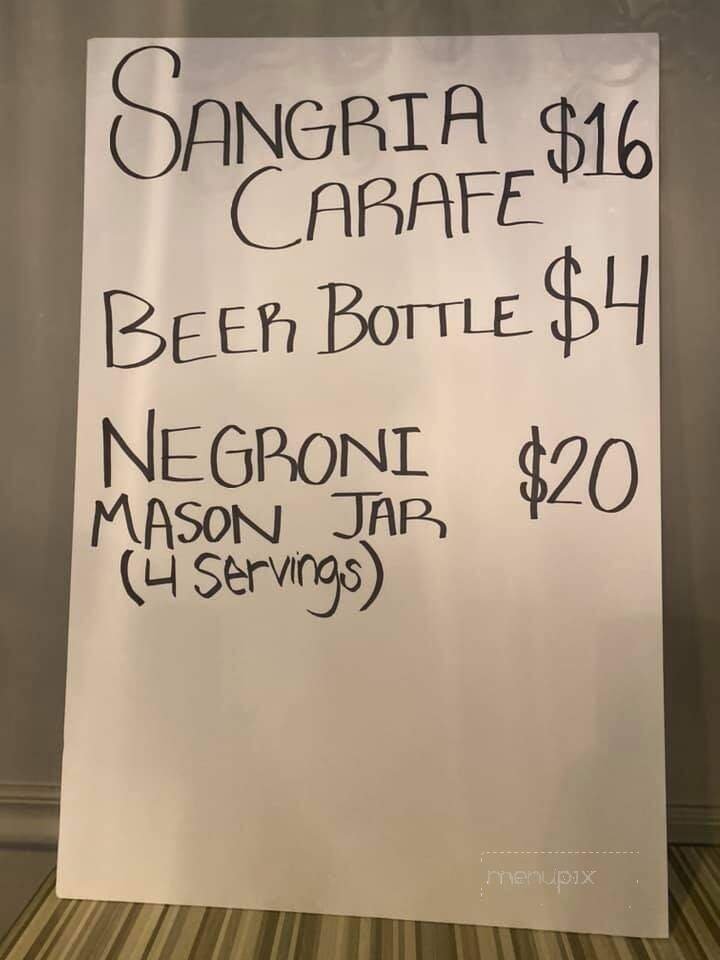 SANGRIA $16
CARAFE
BEER BOTTLE $4
NEGRONI $20
MASON JAR
(4 servings)
menupix